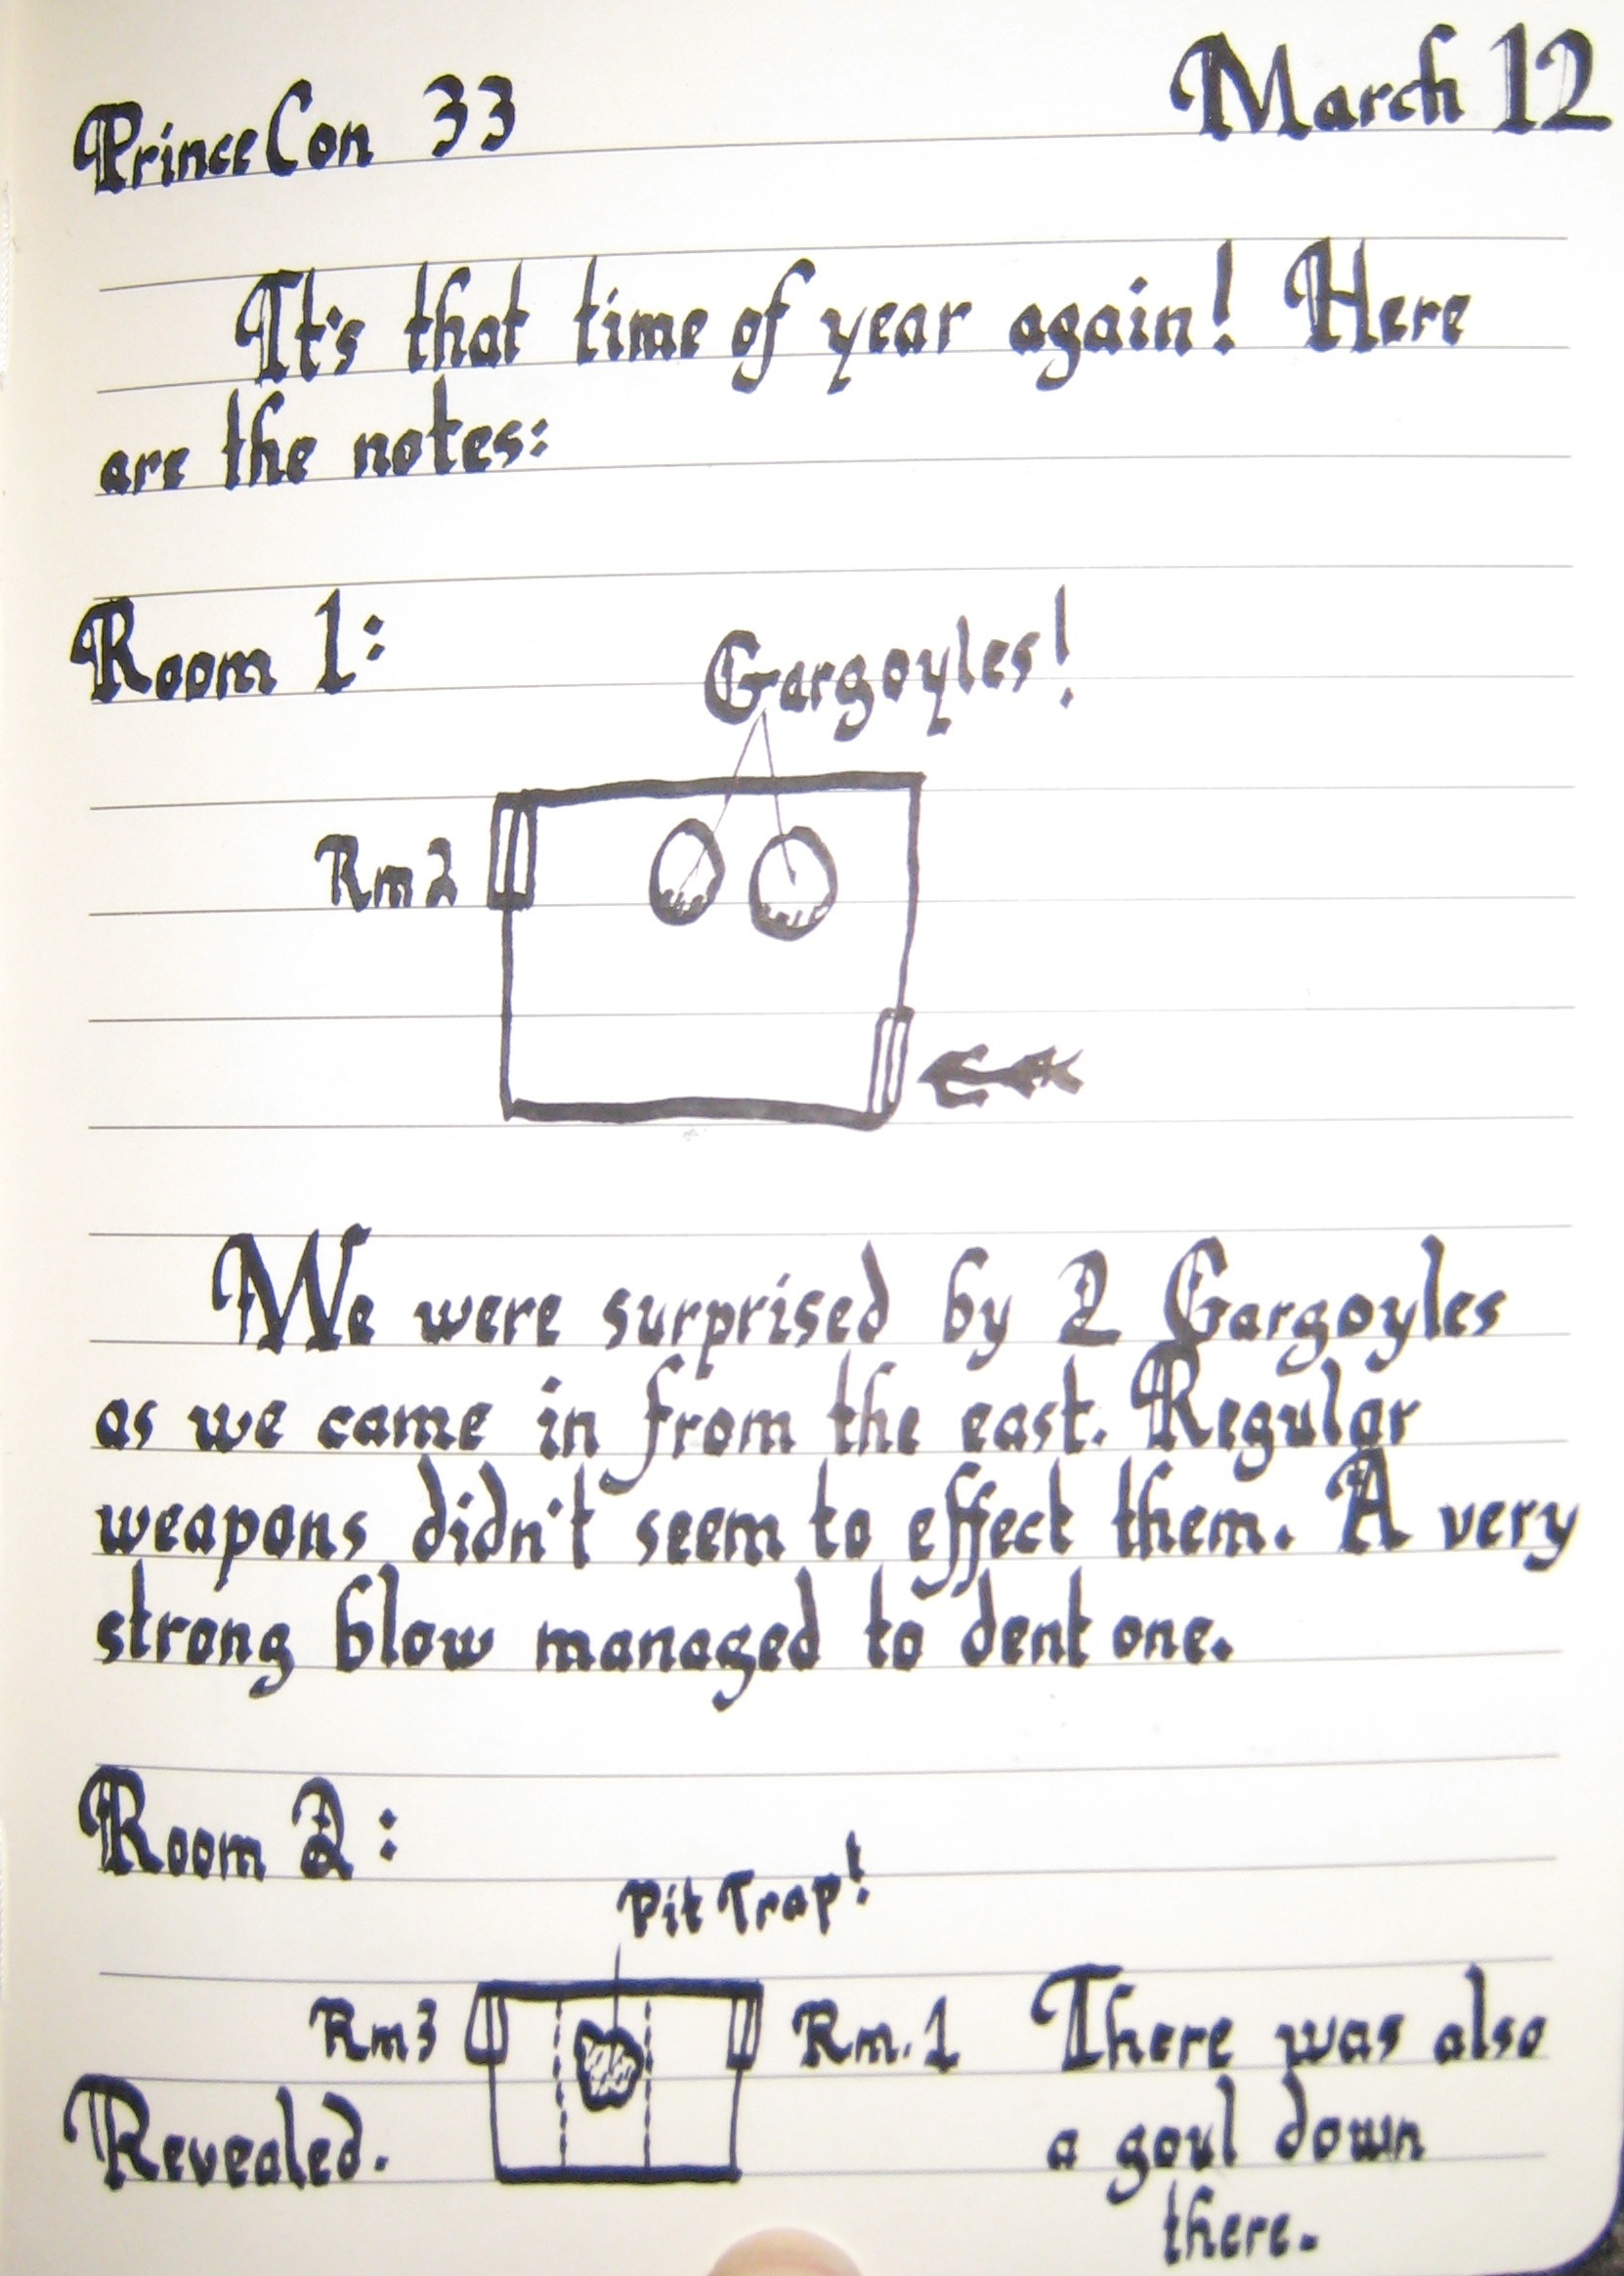 PrinceCon 33
March 12
It's that time of year again! Here
are the notes:
Room 1:
Gargoyles!
Rm 2
We were surprised by 2 Gargoyles
as we came in from the east. Regular
weapons didn't seem to effect them. A very
strong blow managed to dent one.
Room 2:
Pit Trap!
Rm3
Rm. 1
There was also
a goul down
there.
Revealed.